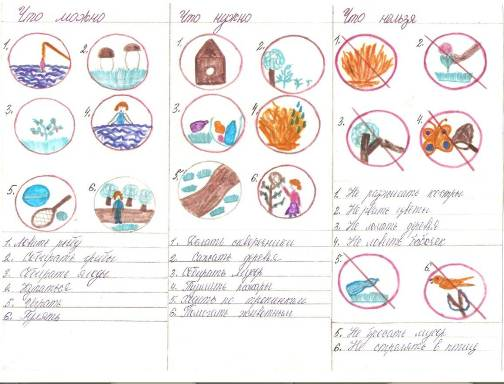 Что можно
1. 2.
3. 4.
5. 6.
1. Ловить рыбу
2. Собирать грибы
3. Собирать ягоды
4. Купаться
5. Играть
6. Гулять
Что нужно
1. 2.
3. 4.
5. 6.
1. Делать скворечники
2. Сажать деревья
3. Собирать мусор
4. Тушить пожары
5. Ходить по тропинкам
6. Помогать животным
Что нельзя
1. 2.
3. 4.
1. Не разжигать костры
2. Не рвать цветы
3. Не ломать деревья
4. Не ловить бабочек
5. 6.
5. Не бросать мусор
6. Не стрелять в птиц